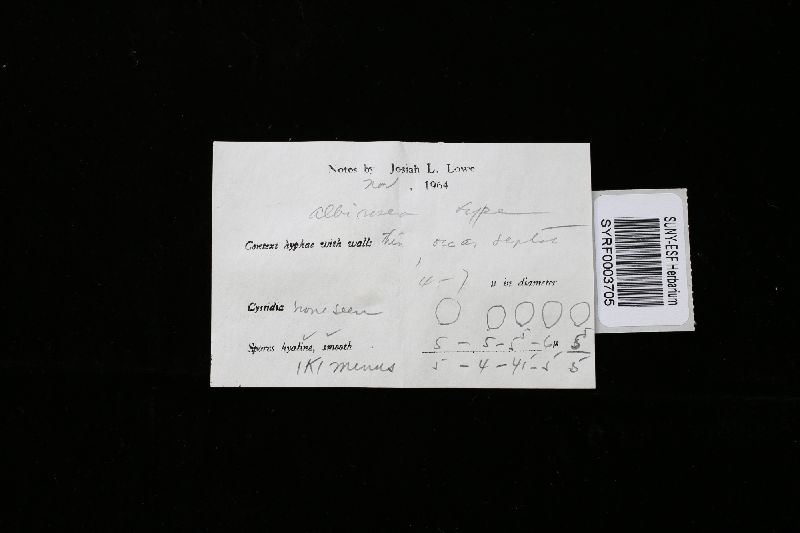 Notes by Josiah L. Lowe
Nov , 1964
albirosea type
Context hyphae with walls thin occ. septate
4 - 7 µ in diameter
Cystidia none seen
Spores hyaline, smooth 5 - 5 - 5 - 6µ 5
IKI minus 5 - 4 - 4½ - 5 5
SUNY-ESF Herbarium
SYRF0003705